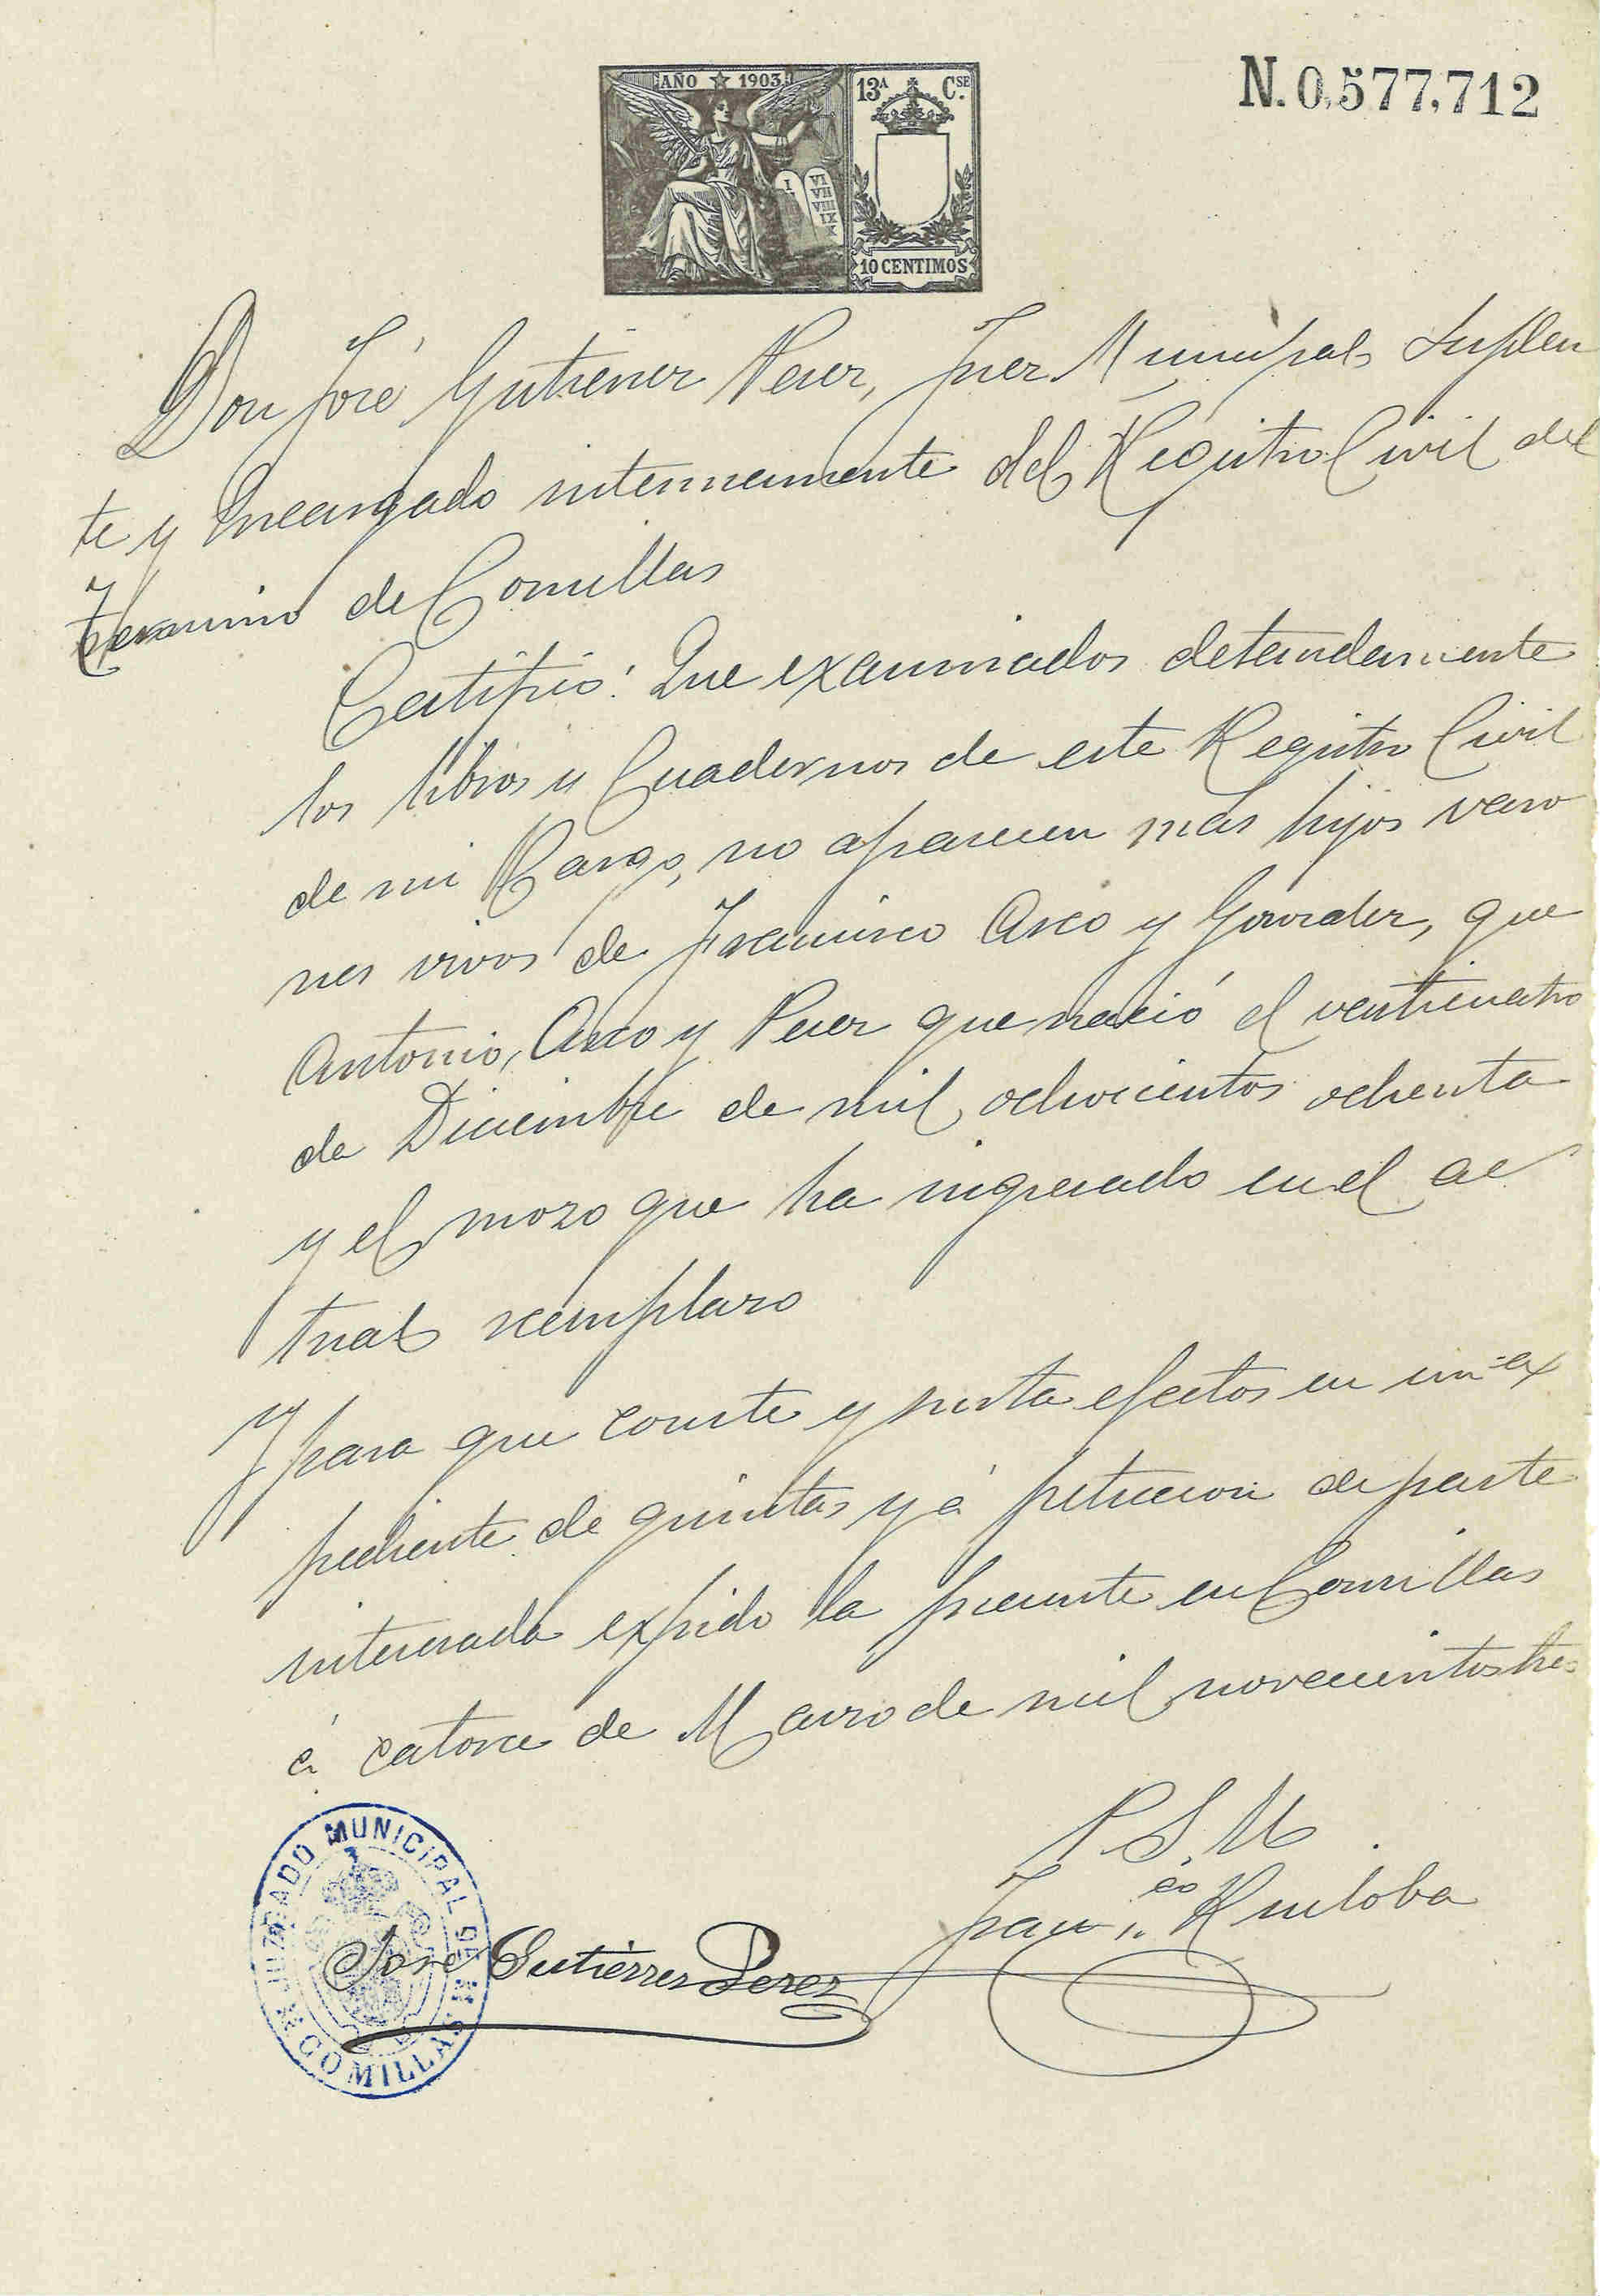 AÑO 1903
13ª Cse.
N. 0,577,712
I VI VII VIII IX X
10 CENTIMOS
Don José Gutierrez Perez, Juez Municipal Suplen
te y Encargado interinamente del Registro Civil del
Termino de Comillas
Certifico: Que examinados detenidamente
los libros y Cuadernos de este Registro Civil
de mi Cargo, no aparecen más hijos varo
nes vivos de Francisco Arco y Gonzalez, que
Antonio, Arco y Perez que nació el veinticuatro
de Diciembre de mil ochocientos ochenta
y el mozo que ha ingresado en el ac
tual reemplazo
Y para que conste y surta efectos en un ex
pediente de quintas y á peticion de parte
interesada expido la presente en Comillas
á catorce de Marzo de mil novecientos tres
P. S. M.
Franco Ruiloba
José Gutiérrez Perez
JUZGADO MUNICIPAL DE COMILLAS